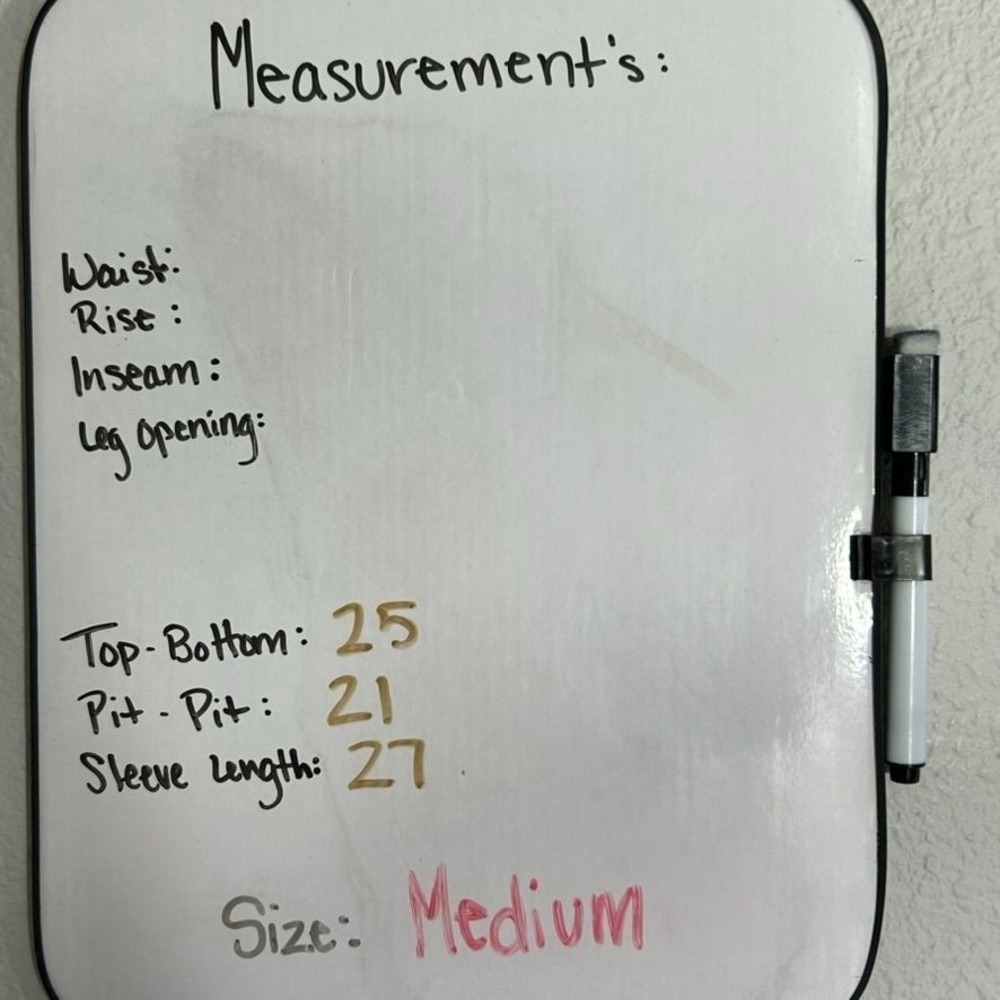 Measurement's:
Waist:
Rise:
Inseam:
Leg Opening:
Top-Bottom: 25
Pit-Pit: 21
Sleeve Length: 27
Size: Medium